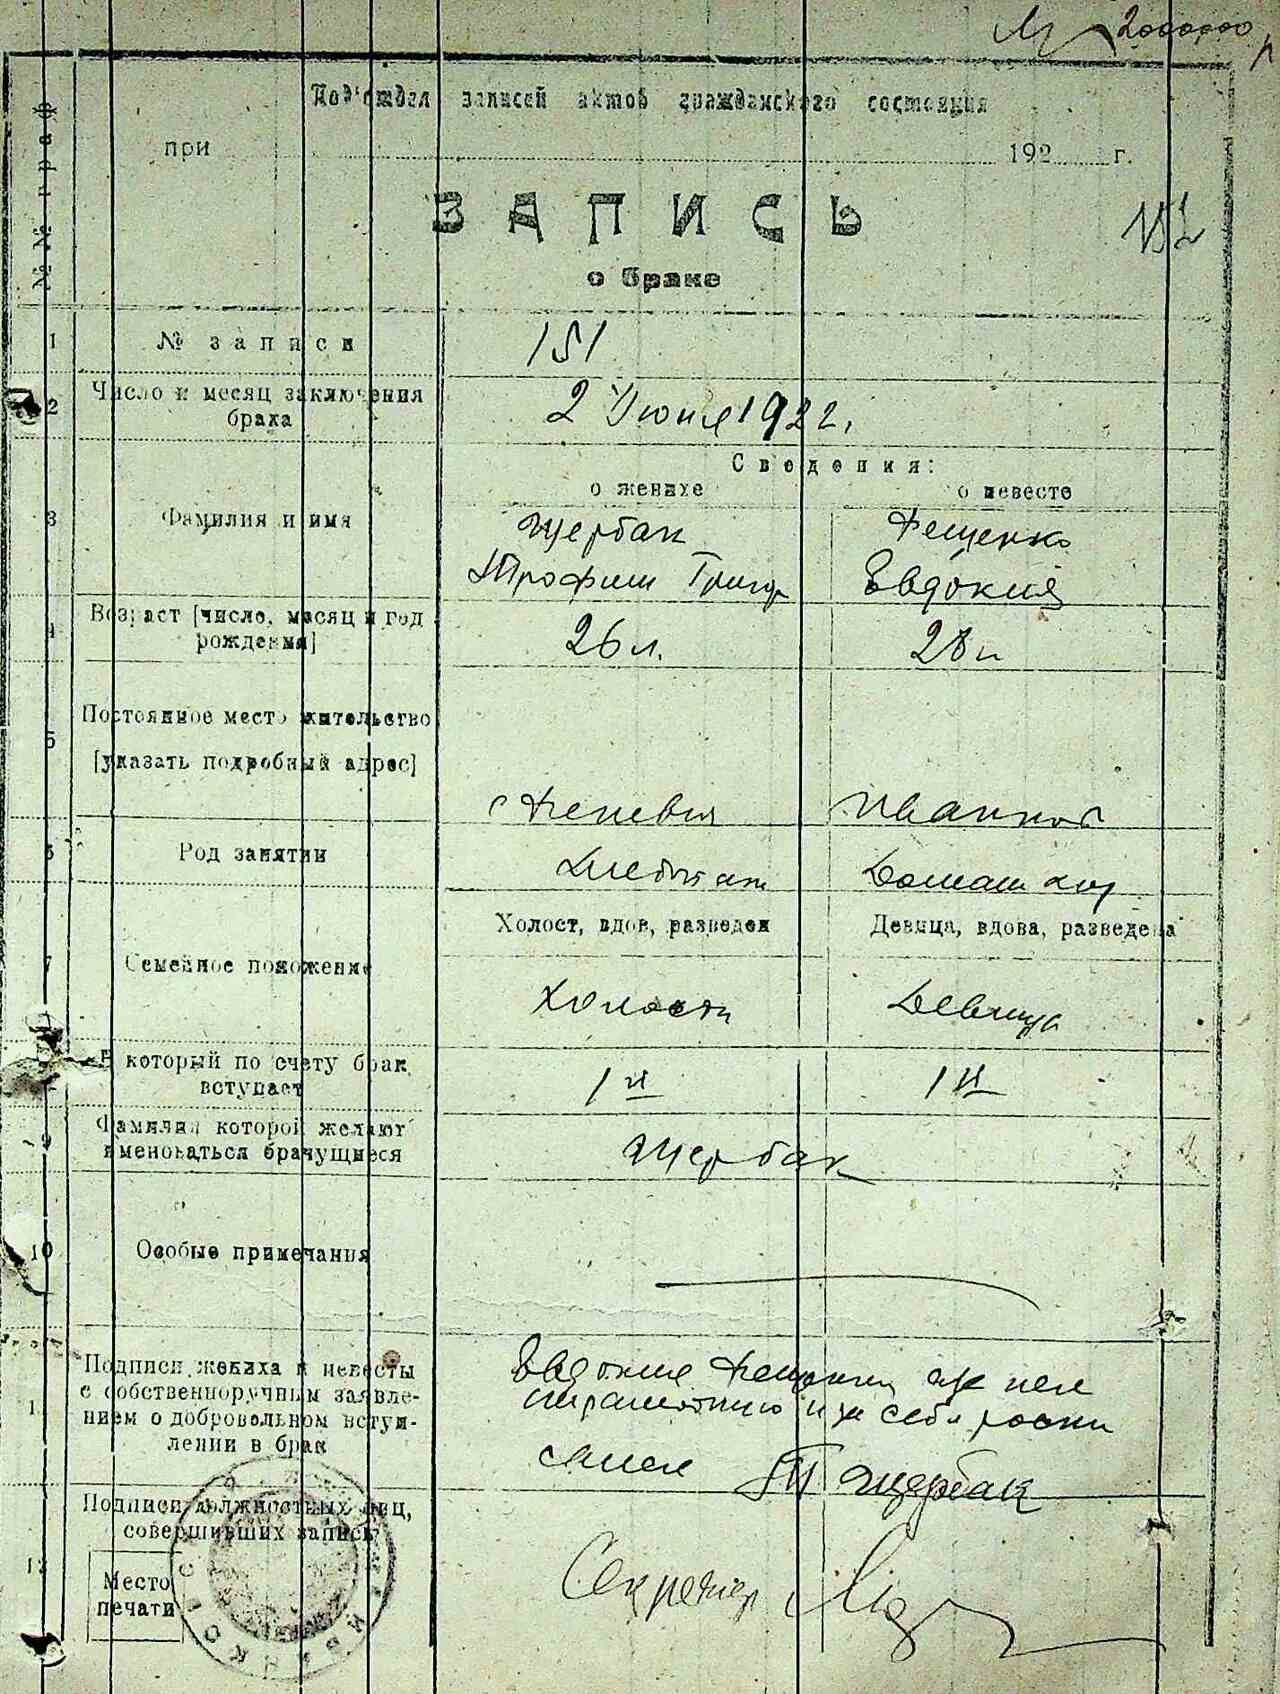 2000000
Под'отдел записей актов гражданского состояния
при 192 г.
№№ граф
ЗАПИСЬ
о браке
1 № записи 151
2 Число и месяц заключения
брака
2 Июня 1922 г.
Сведения:
о женихе о невесте
3 Фамилия и имя
Щербак Фещенко
Трофим Григор Евдокия
4 Возраст [число, месяц и год
рождения]
26 л. 28 л
5 Постоянное место жительство
[указать подробный адрес]
6 Род занятий
Хлебопаш Домаш хоз
Холост, вдов, разведен Девица, вдова, разведена
7 Семейное положение
Холост Девица
В который по счету брак
вступает
1й 1й
9 Фамилия которой желают
именоваться брачущиеся
Щербак
10 Особые примечания
Подписи жениха и невесты
с собственноручным заявле-
нием о добровольном вступ-
лении в брак
Евдокия Фещенко
неграмотную и за себя роспи
Щербак
Подписи должностных лиц,
совершивших запись
12
Место
печати
Секретар